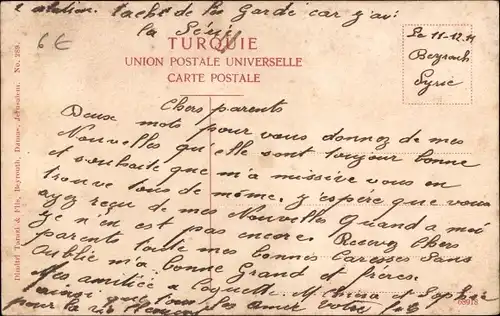 taché de les Garde car j'ai
la
6€
TURQUIE
UNION POSTALE UNIVERSELLE
CARTE POSTALE
Le 11-12.
Beyrouth
Syrie
Chers parents
Deuse mots pour vous donnez de mes
Nouvelles qu'elle sont toujour bonne
et souhaite que m'a missive vous en
trouve tous de même. j'espère que vous
ayez reçu de mes Nouvelles Quand a moi
je n'en est pas encore. Recevez Chers
parents toute mes bonnes Caresses Sans
Oublié m'a bonne Grand et frères.
Mes amitiée a Coquette M. et Sophie
ainsi que tous les amis votre fils
pour la vie
Dimitri Tarazi & Fils, Beyrouth, Damas, Jérusalem. No. 289.
68918